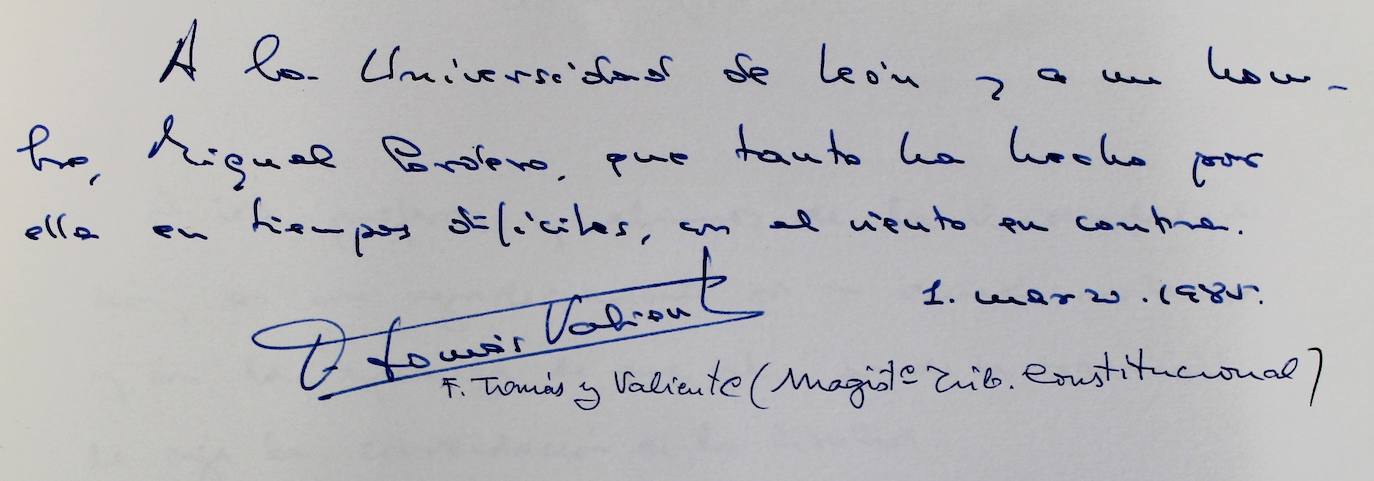 A la Universidad de León y a un hom-
bre, Miguel Cordero, que tanto ha hecho por
ella en tiempos difíciles, con el viento en contra.
1. marzo. 1985.
F. Tomás Valiente
F. Tomás y Valiente (Magistº Trib. Constitucional)